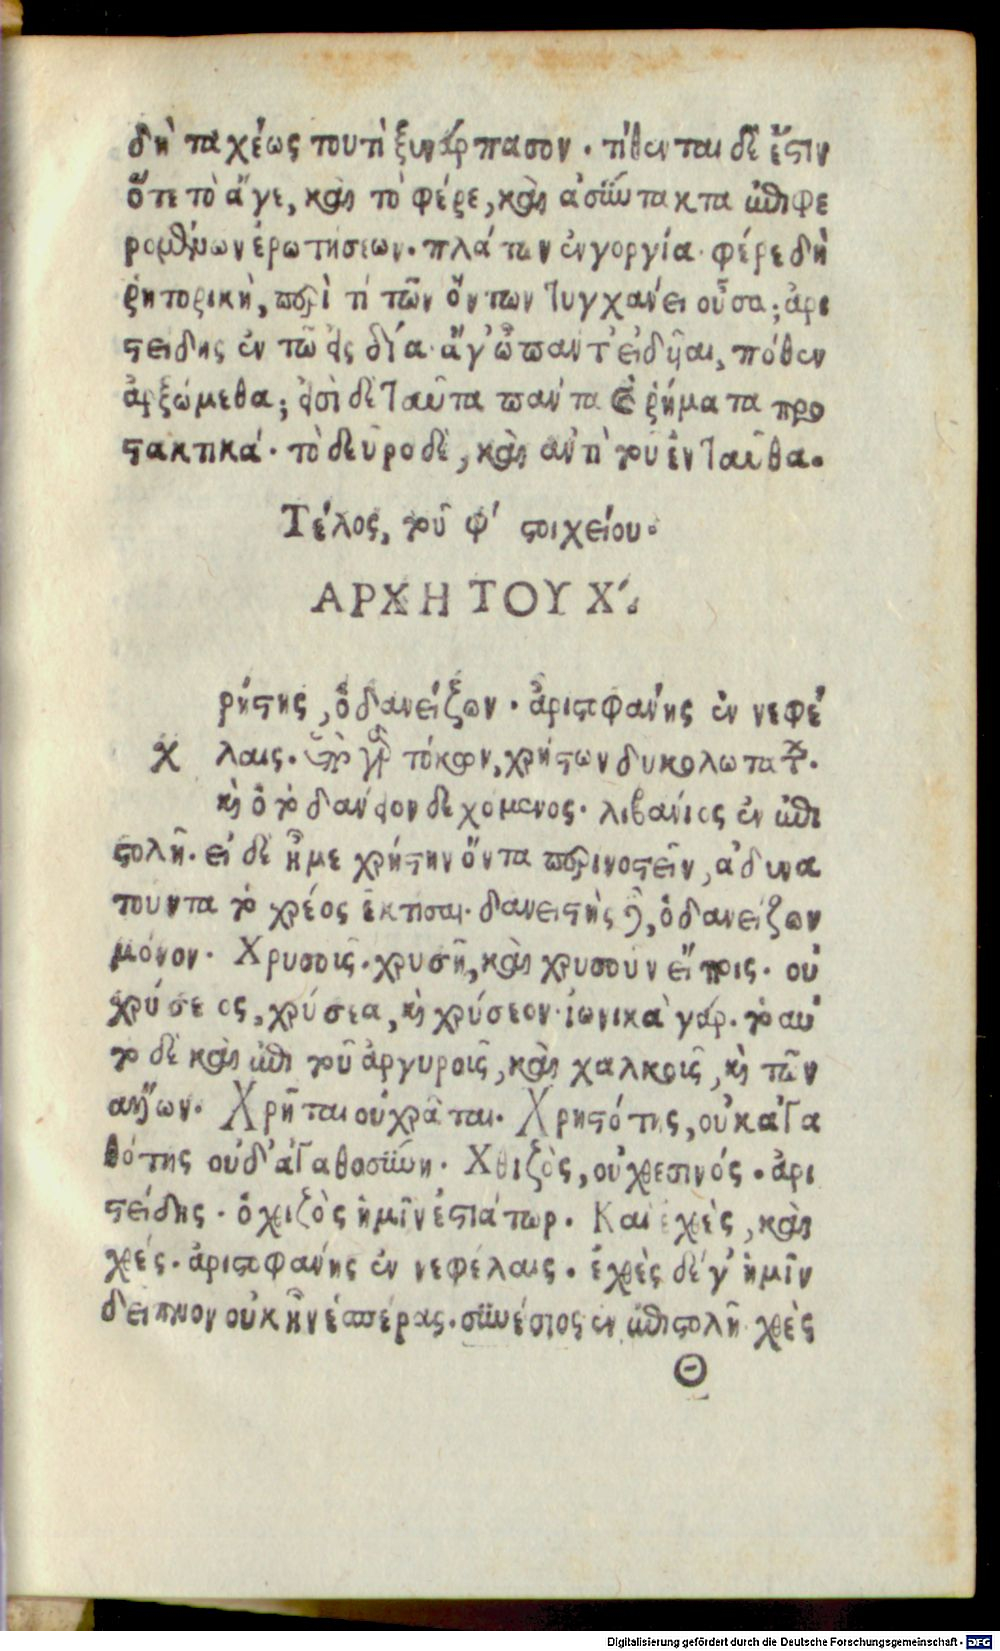 δὴ ταχέως τουτὶ ξυνάρπασον. τίθενται δὲ ἔστιν
ὅτε τὸ ἄγε, καὶ τὸ φέρε, καὶ ἀσύντακτα ἐπιφε
ρομένων ἐρωτήσεων. πλάτων ἐν γοργία. φέρε δὴ
ῥητορικὴ, περὶ τί τῶν ὄντων τυγχανει οὖσα; ἀρι
στείδης ἐν τῶ εἰς δία. ἄγ' ὦ παντ' εἰδῆσαι, πόθεν
ἀρξώμεθα; εἰσὶ δὲ ταῦτα παντα ῥήματα προ
στακτικά. τὸ δεῦρο δὲ, καὶ αντὶ τοῦ ἐνταῦθα.
Τέλος, τοῦ φ' στοιχείου.
ΑΡΧΗ ΤΟΥ Χ'.
ρήστης, ὁ δανείζων. ἀριστοφανης ἐν νεφέ
χ λαις. τόκων, χρήστων δυκολωτατ.
καὶ ὁ τὸ δανειον δεχόμενος. λιβανιος ἐν ἐπι
στολῆ. εἰ δέ με χρήστην ὄντα περινοστεῖν, ἀδυνα
τουντα τὸ χρέος ἐκτισαι. δανειστὴς δὲ, ὁ δανείζων
μόνον. Χρυσοῖς. χρυσῆ, καὶ χρυσοῦν εἴποις. οὐ
χρύσεος, χρύσεα, καὶ χρύσεον. ἰωνικὰ γάρ. τὸ αὐ
τὸ δὲ καὶ ἐπὶ τοῦ ἀργυροῖς, καὶ χαλκοῖς, καὶ τῶν
Χρῆται οὐ χρᾶται. Χρηστότης, οὐκ ἀγα
θότης οὐδ' ἀγαθοσύνη. Χθιζὸς, οὐ χθεσινός. ἀρι
στείδης. ὁ χθιζὸς ἡμῖν ἑστιάτωρ. Καὶ ἐχθὲς, καὶ
χθές. ἀριστοφανης ἐν νεφέλαις. ἐχθὲς δέ γ' ἡμῖν
δεῖπνον οὐκ ἦν ἑσπέρας. συνέσιος ἐν ἐπιστολῆ. χθὲς
Θ
Digitalisierung gefördert durch die Deutsche Forschungsgemeinschaft - DFG